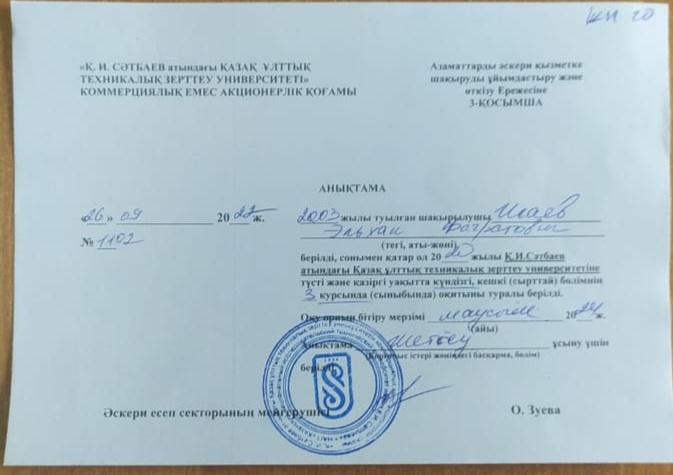 «Қ. И. СӘТБАЕВ атындағы ҚАЗАҚ ҰЛТТЫҚ
ТЕХНИКАЛЫҚ ЗЕРТТЕУ УНИВЕРСИТЕТІ»
КОММЕРЦИЯЛЫҚ ЕМЕС АКЦИОНЕРЛІК ҚОҒАМЫ
Азаматтарды әскери қызметке
шақыруды ұйымдастыру және
өткізу Ережесіне
3-ҚОСЫМША
АНЫҚТАМА
«26» 09 2022ж.
№ 1102
2003 жылы туылған шақырылушы Исаев
Эльхан
(тегі, аты-жөні)
берілді, сонымен қатар ол 2020 жылы Қ.И.Сәтбаев
атындағы Қазақ ұлттық техникалық зерттеу университетіне
түсті және қазіргі уақытта күндізгі, кешкі (сырттай) бөлімнің
3 курсында (сыныбында) оқитыны туралы берілді.
Оқу орнын бітіру мерзімі маусым 2024ж.
(айы)
Анықтама ұсыну үшін
(Қорғаныс істері жөніндегі басқарма, бөлім)
берілді
Әскери есеп секторының меңгерушісі
О. Зуева